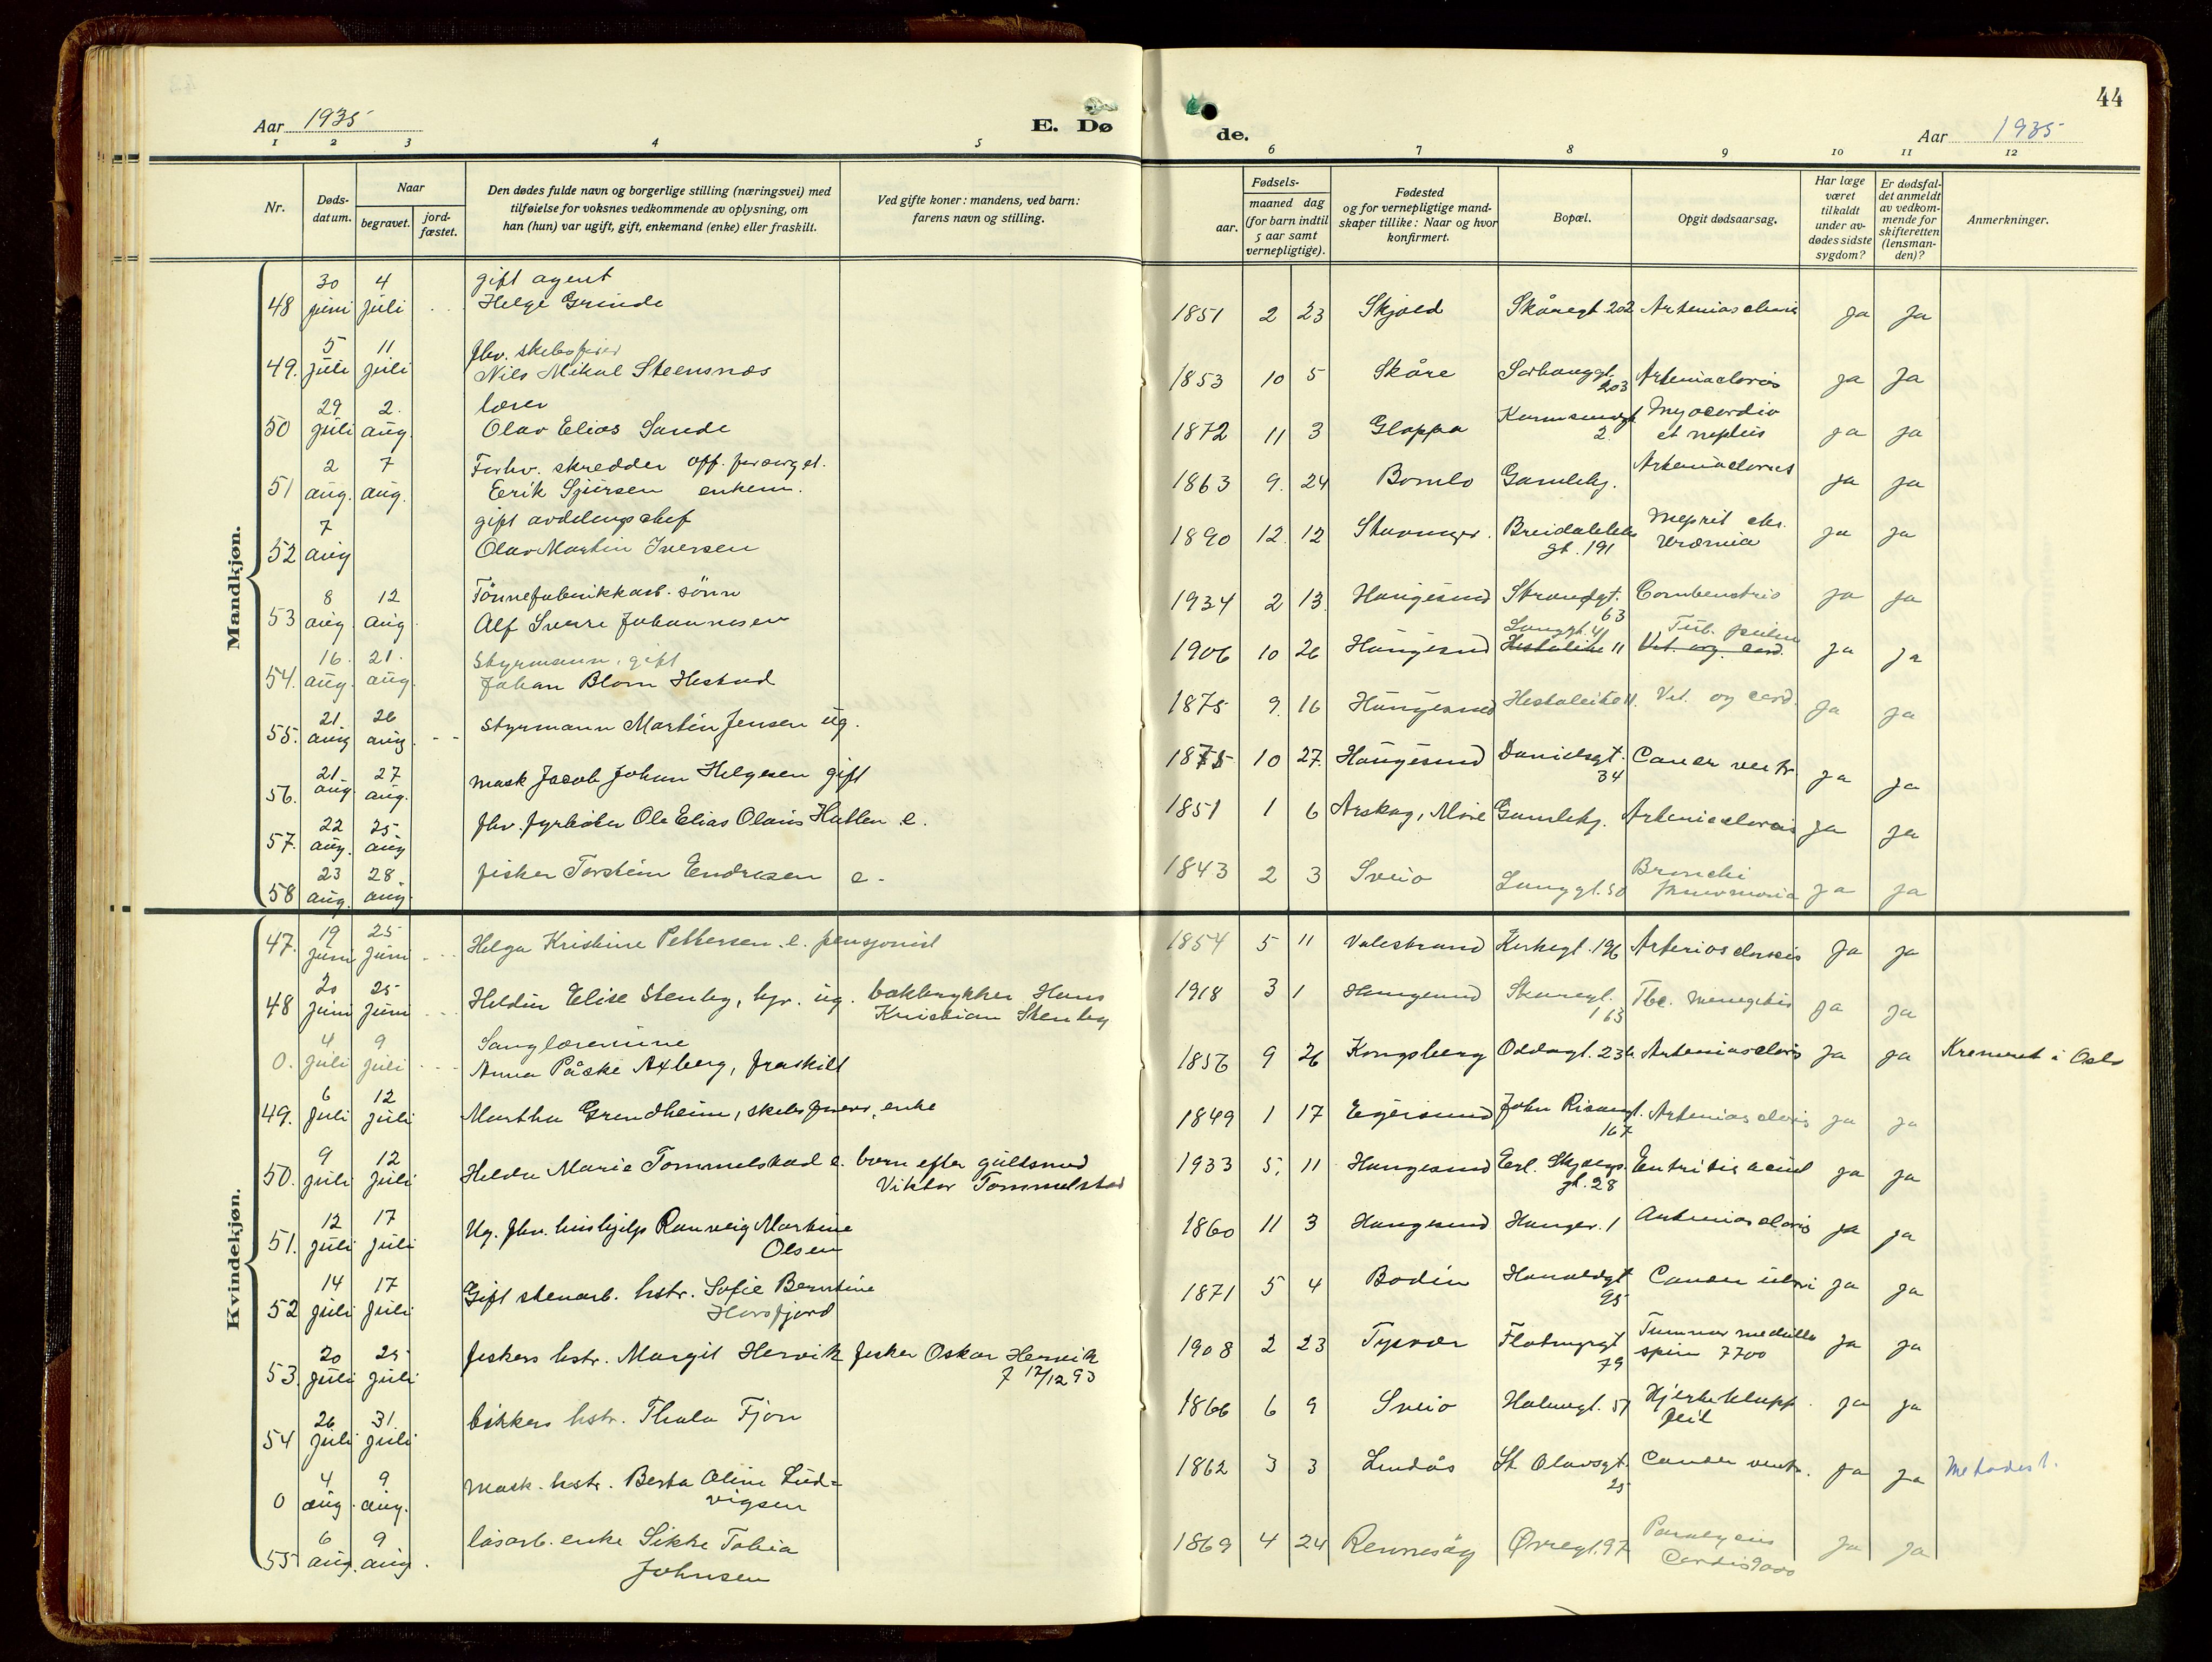 44
Aar 1935
E. Dø
de.
Aar 1935
1 2 3 4 5 6 7 8 9 10 11 12
Nr.
Døds-
datum.
Naar
begravet.
jord-
fæstet.
Den dødes fulde navn og borgerlige stilling (næringsvei) med
tilføielse for voksnes vedkommende av oplysning, om
han (hun) var ugift, gift, enkemand (enke) eller fraskilt.
Ved gifte koner: mandens, ved barn:
farens navn og stilling.
Fødsels-
aar.
maaned dag
(for barn indtil
5 aar samt
vernepligtige).
Fødested
og for vernepligtige mand-
skaper tillike: Naar og hvor
konfirmert.
Bopæl.
Opgit dødsaarsag.
Har læge
været
tilkaldt
under av-
dødes sidste
sygdom?
Er dødsfal-
det anmeldt
av vedkom-
mende for
skifteretten
(lensman-
den)?
Anmerkninger.
Mandkjøn.
30 4 gift agent
48 juni juli Helge Grinde 1851 2 23 Skjold Skåregt 202 ja ja
5 11 fhv.
49. juli juli Nils Mikal Steensnæs 1853 10 5 Skåre 203 ja ja
29 2. lærer
50 juli aug. Olav Elias Sande 1872 11 3 Gloppa 2. Myocardia et ja ja
2 7 Forhv. skredder off. forsørget.
51 aug. aug. Eerik Sjursen enkem. 1863 9. 24 Bømlo Gamlehj. ja ja
7 gift avdelingschef
52 aug Olav Martin Iversen 1890 12. 12 Stavanger. gt. 191 Uræmia ja ja
8 12 Tönnefabrikkarb. sönn
53 aug. aug. Alf Sverre Johannesen 1934 2 13. Haugesund Strandgt. 63 Combustio ja ja
16. 21. Styrmann, gift
54. aug. aug. Johan Blom Hestad 1906 10 26 Haugesund Langgt. 41 Tub. pulm ja ja
21. 26
55. aug aug. styrmann Martin Jensen ug. 1875 9. 16 Haugesund Hestaleite 11. Vit. og card. ja ja
21. 27
56. aug. aug. mask Jacob Johan Helgesen gift 1875 10 27. Haugesund Danielsgt. 34 Cancer ventr. ja ja
22 25
57. aug. aug fhv. fyrbøter Ole Elias Olaus Hatlen e. 1851 1 6 Arskog, Møre Gamlehj. ja ja
23 28.
58 aug. aug. fisker Torstein Endresen e. 1843 2 3 Sveio Langgt. 50 Bronchi pneumonia ja ja
Kvindekjøn.
19 25
47. juni juni Helga Kristine Pettersen. e. pensjonist 1854 5 11 Valestrand Kirkegt. 196 Arteriosclerosis ja ja
20 25
48 juni juni Elise Stenby, ug. Hans Kristian Stenby 1918 3 1 Haugesund Skåregt. 163 Tbc. ja ja
4 9 Sanglærerinne
0. juli juli Anna Påske Axberg, fraskilt 1856 9 26 Kongsberg Oddagt. ja ja Kremert i Oslo
6 12
49. juli juli Martha Grindheim, enke 1849 1 17 Egersund John 167 ja ja
9 12
50. juli juli Marie Tommelstad barn efter gullsmed Viktor Tommelstad 1933 5. 11 Haugesund gt. 28 ja ja
12 17
51. juli juli Ug. fhv. hushjelp Ranveig Martine Olsen 1860 11 3 Haugesund 1 ja ja
14 17
52 juli juli Gift stenarb. hstr. Sofie Berntine Horsfjord 1871 5 4 Bodin Haraldsgt 95 Cancer uteri ja ja
20 25
53. juli juli fiskers hstr. Margit Hervik fisker Oskar Hervik f 12/12 93 1908 2 23 Tysvær Flotmyrgt 79 Tumor medulla spin ja ja
26 31.
54 juli juli hstr. Thala Fjon 1866 6 9 Sveio 51 Hjerteklapp feil ja ja
4 9
0 aug. aug. mask. hstr. Berta Oline Lud=
vigsen 1862 3 3 Lindås St. Olavsgt. 25 Cancer ventr. ja ja Metodist.
6 9
55 aug. aug. løsarb. enke Sikke Tobia
Johnsen 1869 4 24 Rennesøy Øvregt. 97 ja ja